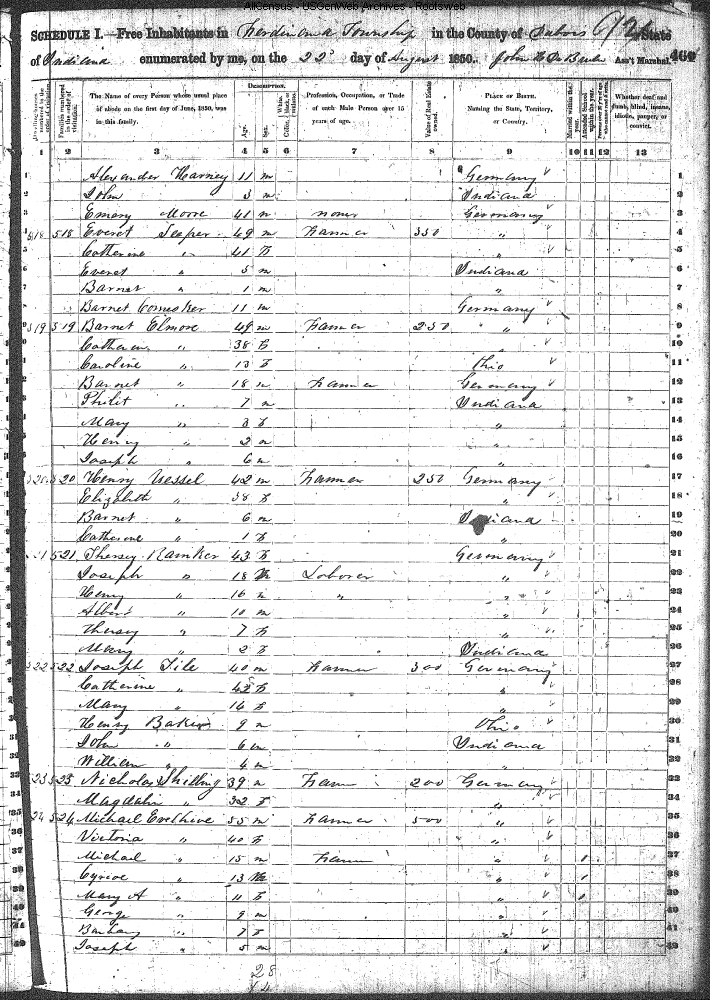 AllCensus - USGenWeb Archives - Rootsweb
SCHEDULE I.—Free Inhabitants in Ferdinand Township in the County of Dubois State
of Indiana enumerated by me, on the 22d day of August 1850. Ass't Marshal.
Dwelling-houses numbered in the order of visitation. Families numbered in the order of visitation. The Name of every Person whose usual place of abode on the first day of June, 1850, was in this family. DESCRIPTION. Age. Sex. White, black, or mulatto. Color. Profession, Occupation, or Trade of each Male Person over 15 years of age. Value of Real Estate owned. PLACE OF BIRTH. Naming the State, Territory, or Country. Married within the year. Attended School within the year. Whether deaf and dumb, blind, insane, idiotic, pauper, or convict.
1 2 3 4 5 6 7 8 9 10 11 12 13
Alexander Harney 11 m Germany 1
John 3 m Indiana 2
Emery Moore 41 m none Germany 3
518 518 Everet Seeper 49 m Farmer 350 " 4
Catherine " 41 F " 5
Everet " 5 m Indiana 6
Barnet " 1 m " 7
Barnet Comesker 11 m Germany 8
519 519 Barnet Elmore 49 m Farmer 250 " 9
Catherin " 38 F " 10
Caroline " 13 F Ohio 11
Barnet " 18 m Farmer Germany 12
Philit " 7 m Indiana 13
Mary " 3 F " 14
Henry " 2 m " 15
Joseph " 6 m " 16
520 520 Henry Uessel 42 m Farmer 250 Germany 17
Elizabeth " 38 F " 18
Barnet " 6 m Indiana 19
Catherine " 1 F " 20
521 Thersey Ramker 43 F Germany 21
Joseph " 18 m Laborer " 22
Henry " 16 m " " 23
Albert " 10 m " 24
Thersy " 7 F " 25
Mary " 2 F Indiana 26
522 522 Joseph Tile 40 m Farmer 300 Germany 27
Catherine " 42 F " 28
Mary " 16 F " 29
Henry Baker 9 m Ohio 30
John " 6 m Indiana 31
William " 4 m " 32
523 523 Nicholas Shilling 39 m Farm 200 Germany 33
Magdalin " 32 F " 34
524 524 Michael Evelhive 55 m Farmer 500 " 35
Victoria " 40 F " 36
Michael " 15 m Farm " 1 37
Cyrioc " 13 m " 1 38
Mary A " 11 F " 1 39
George " 9 m " 40
" 7 F " 41
Joseph " 5 m " 42
28
14